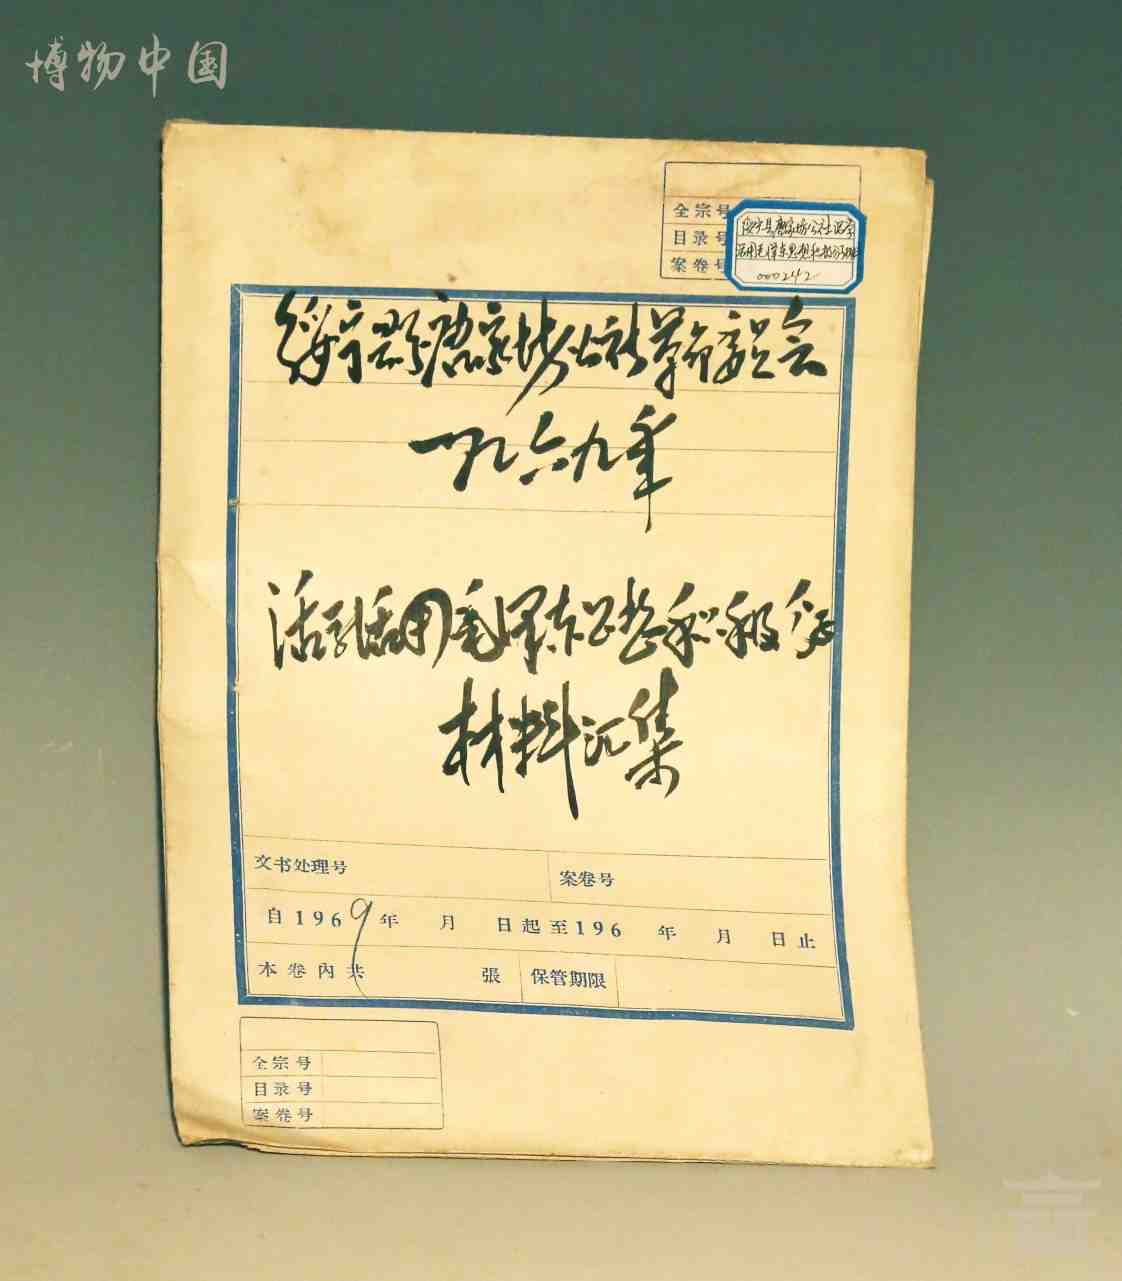 博物中国
全宗号
目录号
案卷号
绥宁县唐家坊公社活学
活用毛泽东思想积极分子材料
000242
绥宁县唐家坊公社革命委员会
一九六九年
活学活用毛泽东思想积极分子
材料汇集
文书处理号 案卷号
自1969年 月 日起至196 年 月 日止
本卷內共 張 保管期限
全宗号
目录号
案卷号